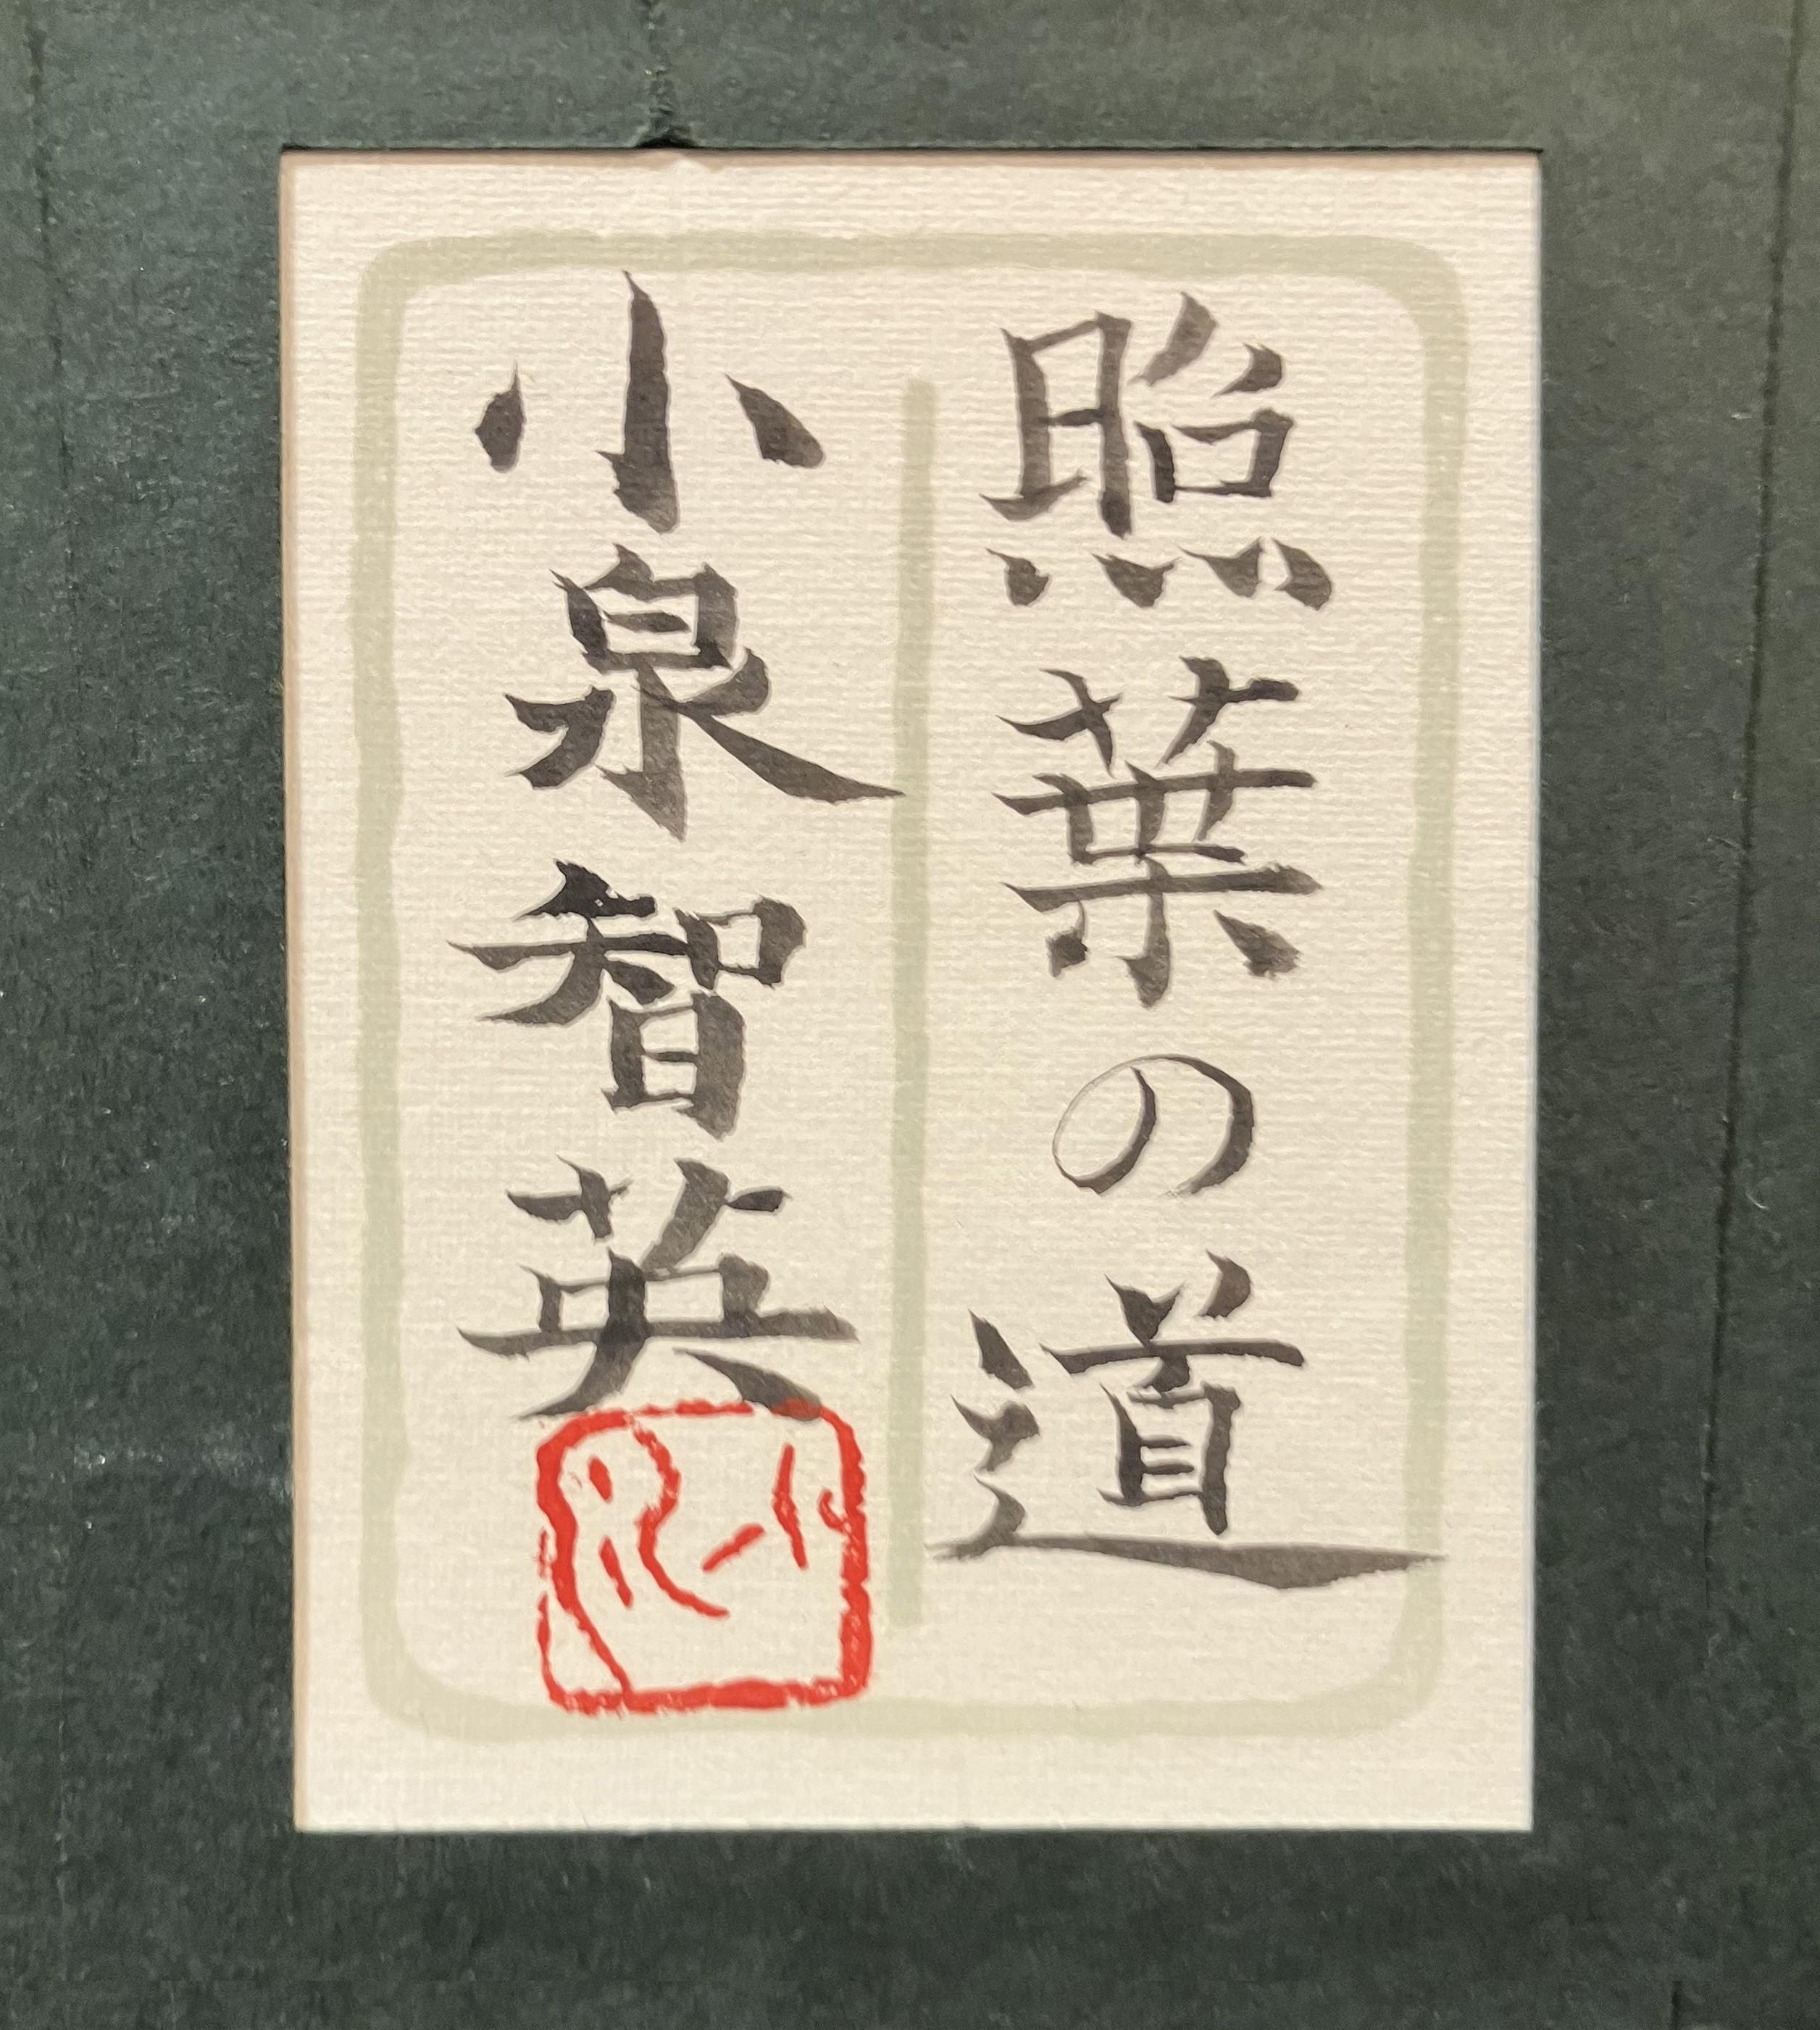 照葉の道
小泉智英